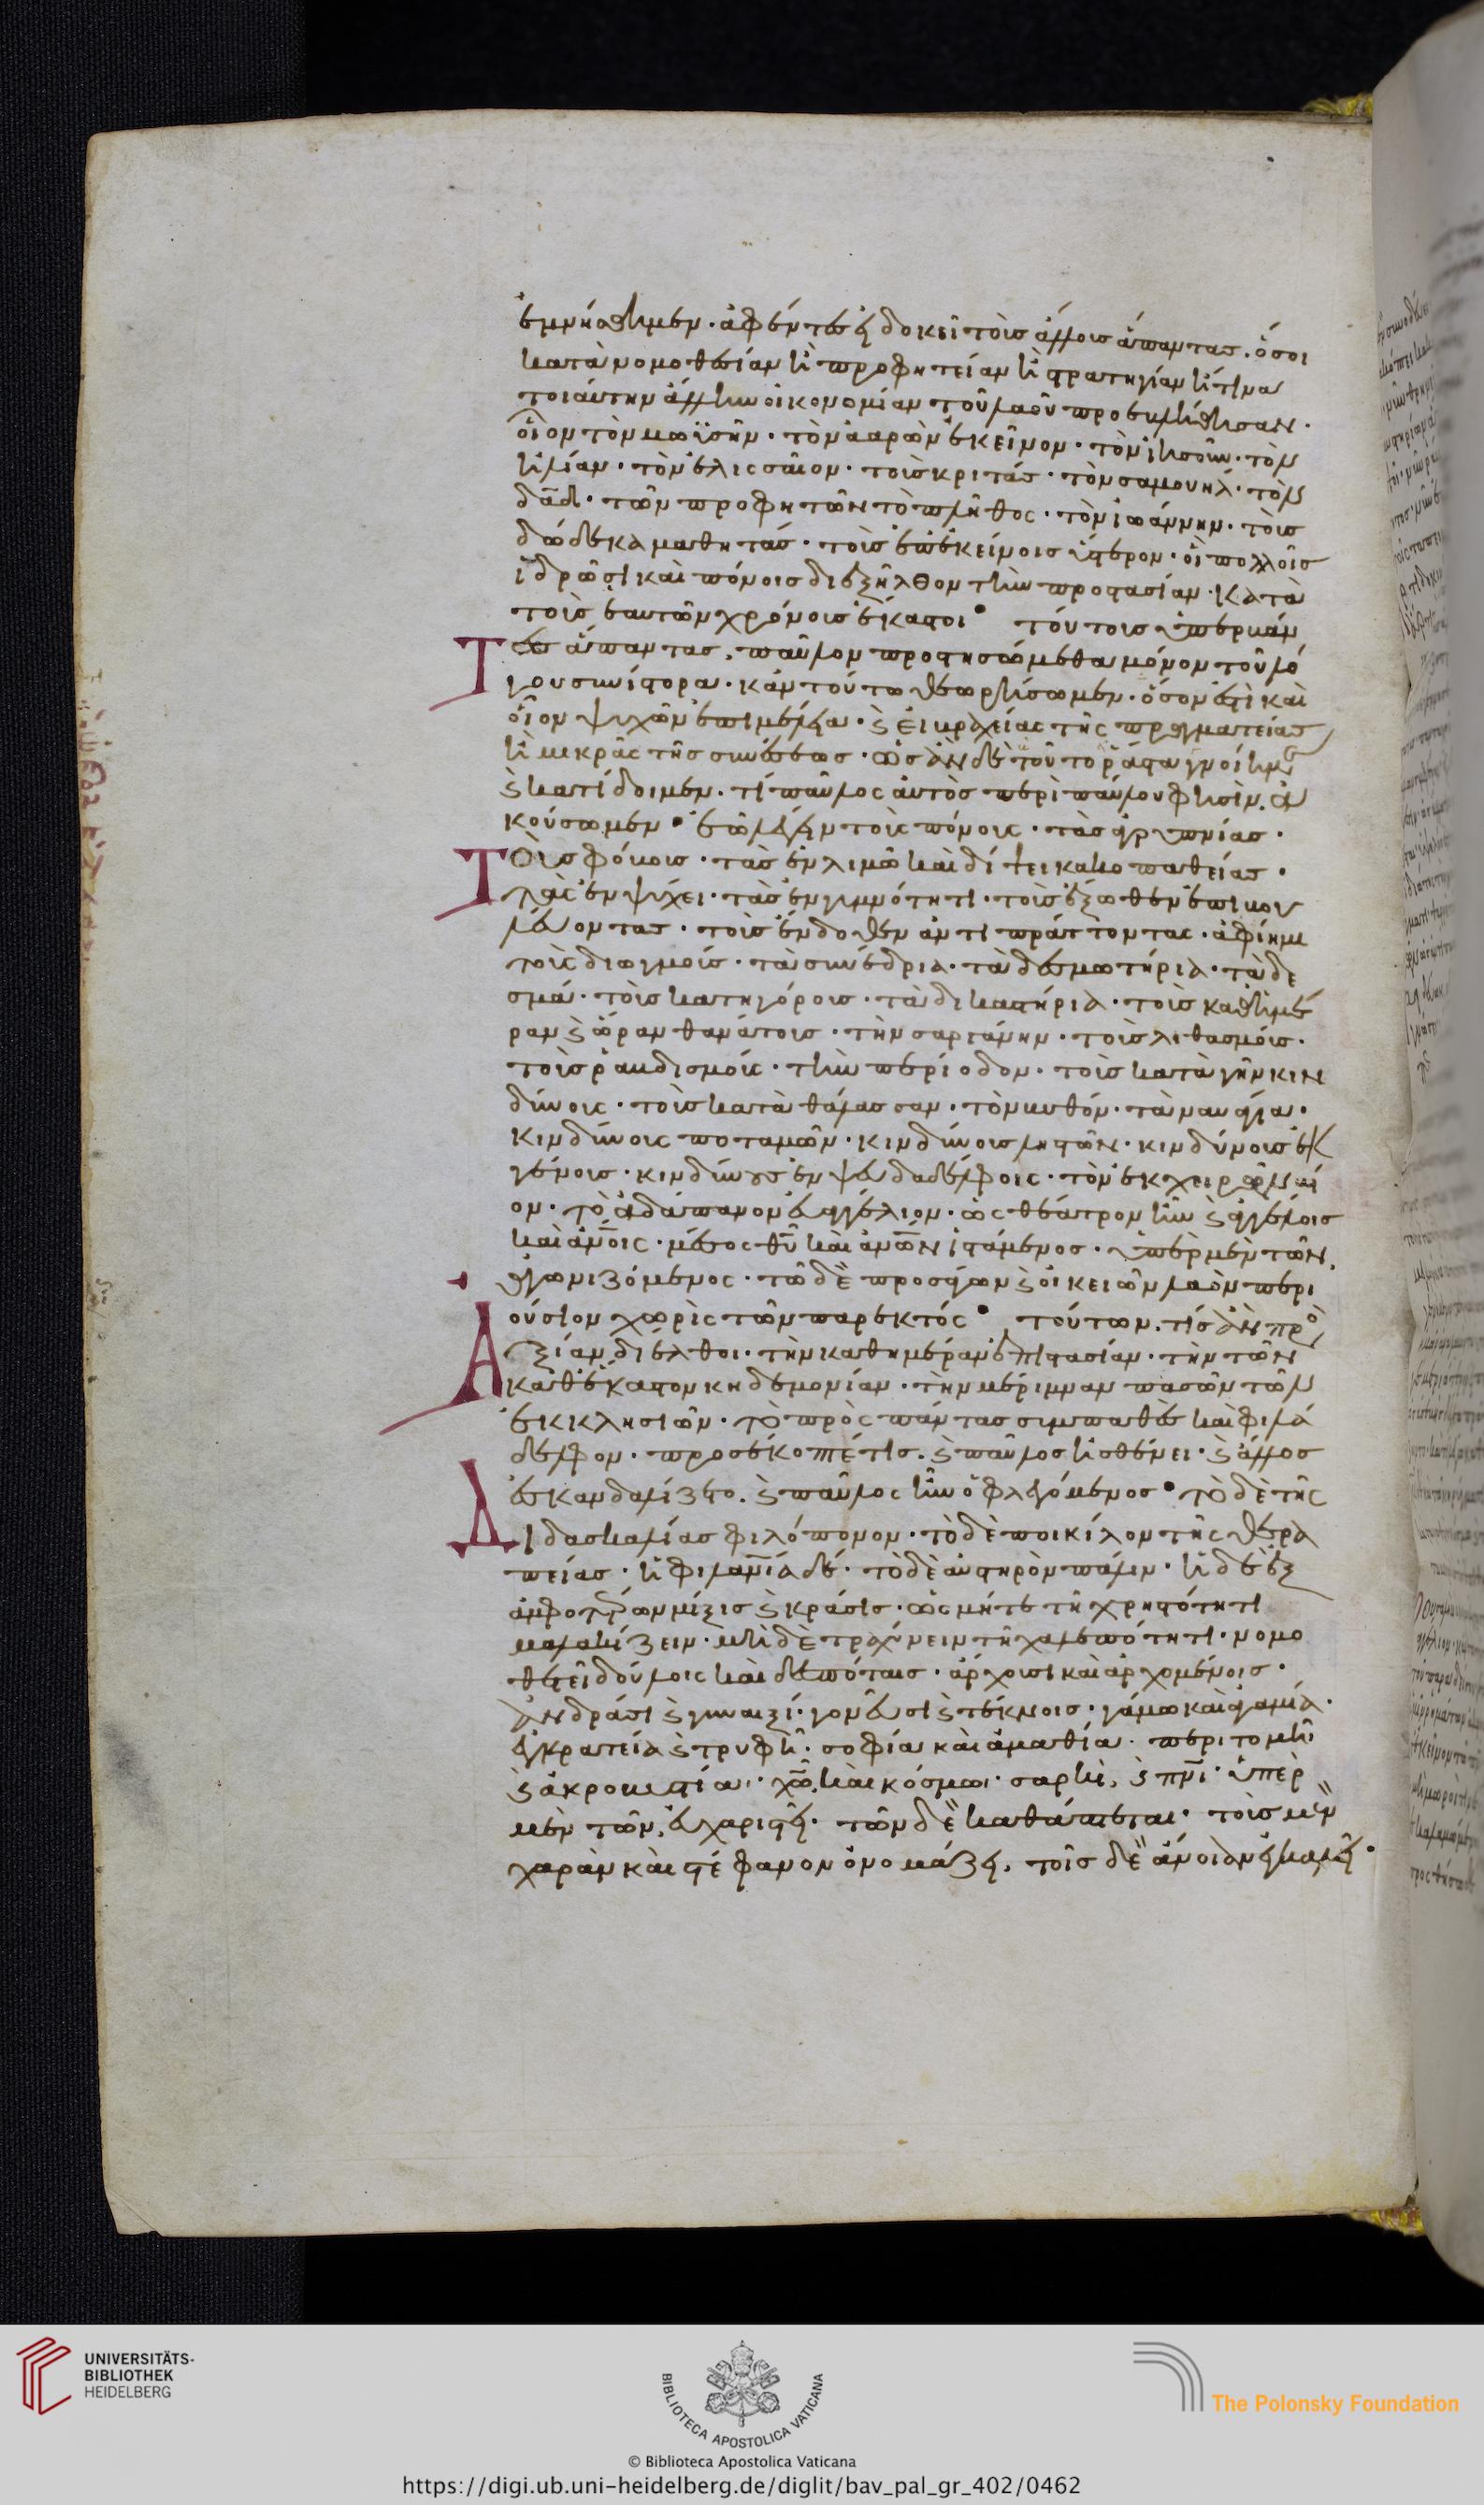 ἐμνήσθημεν· ἀφέντες εἰ δοκεῖ τοὺς ἄλλους ἅπαντας· ὅσοι
κατὰ νομοθεσίαν ἢ προφητείαν ἢ στρατηγίαν ἤ τινα
τοιαύτην ἄλλην οἰκονομίαν τοῦ λαοῦ προεβλήθησαν·
οἷον τὸν μωϋσῆν· τὸν ἀαρὼν ἐκεῖνον· τὸν ἰησοῦν· τὸν
ἠλίαν· τὸν ἐλισσαῖον· τοὺς κριτάς· τὸν σαμουήλ· τὸν
δᾱδ· τῶν προφητῶν τὸ πλῆθος· τὸν ἰωάννην· τοὺς
δώδεκα μαθητάς· τοὺς ἐπ' ἐκείνοις ὕστερον· οἳ πολλοῖς
ἱδρῶσι καὶ πόνοις διεξῆλθον τὴν προστασίαν· κατὰ
τοὺς ἑαυτῶν χρόνους ἕκαστοι· τούτους ὑπερβάν
Τες ἅπαντας, παῦλον προστησώμεθα μόνον τοῦ λό
γου συνίστορα· κἀν τούτω θεωρήσωμεν· ὅσον ἐστὶ καὶ
οἷον ψυχῶν ἐπιμέλεια· ϗ εἰ βραχείας τῆς πραγματείας
ἢ μικρᾶς τῆς συνέσεως· ὡς ἂν δὲ τοῦτο ῥᾶστα γνοίημεν
ϗ κατίδοιμεν· τί παῦλος αὐτὸς περὶ παύλου φησὶν, ἀ
κούσωμεν· ἐῶ λέγειν τοὺς πόνους· τὰς ἀγρυπνίας·
Τοὺς φόβους· τὰς ἐν λιμῶ καὶ δίψει κακοπαθείας·
τὰς ἐν ψύχει· τὰς ἐν γυμνότητι· τοὺς ἔξωθεν ἐπιβου
λεύοντας· τοὺς ἔνδοθεν ἀντιπράττοντας· ἀφίημι
τοὺς διωγμούς· τὰ συνέδρια· τὰ δεσμωτήρια· τὰ δε
σμά· τοὺς κατηγόρους· τὰ δικαστήρια· τοὺς καθημέ
ραν ϗ ὥραν θανάτους· τὴν σαργάνην· τοὺς λιθασμούς·
τοὺς ῥαβδισμούς· τὴν περίοδον· τοὺς κατὰ γῆν κιν
δύνους· τοὺς κατὰ θάλασσαν· τὸν βυθόν· τὰ ναυάγια·
κινδύνους ποταμῶν· κινδύνους ληστῶν· κινδύνους ἐκ
γένους· κινδύνους ἐν ψευδαδέλφοις· τὸν ἐκ χειρῶν βί
ον· τὸ ἀδάπανον εὐαγγέλιον· ὡς θέατρον ἦν ϗ ἀγγέλοις
καὶ ἀν̅οις· μέσος θῡ καὶ ἀν̅ων ἱστάμενος· ὑπὲρ μὲν τῶν,
ἀγωνιζόμενος· τῶ δὲ προσάγων ϗ οἰκειῶν λαὸν περι
ούσιον χωρὶς τῶν παρεκτός· τούτων, τίς ἂν πρὸς
Ἀξίαν διέλθοι· τὴν καθημέραν ἐπιστασίαν· τὴν τῶν
καθέκαστον κηδεμονίαν· τὴν μέριμναν πασῶν τῶν
ἐκκλησιῶν· τὸ πρὸς πάντας συμπαθὲς καὶ φιλά
δελφον· προσέκοπτέ τις· ϗ παῦλος ἠσθένει· ϗ ἄλλος
ἐσκανδαλίζετο· ϗ παῦλος ἦν ὁ φλεγόμενος· τὸ δὲ τῆς
Διδασκαλίας φιλόπονον· τὸ δὲ ποικίλον τῆς θερα
πείας· ἡ φιλαν̅ία δέ· τὸ δὲ αὐστηρὸν πάλιν· ἡ δὲ ἐξ
ἀμφοτέρων μίξις ϗ κράσις· ὡς μήτε τῆ χρηστότητι
μαλακίζειν· μὴ δὲ τραχύνειν τῆ χαλεπότητι· νομο
θετεῖ δούλοις καὶ δεσπόταις· ἄρχουσι καὶ ἀρχομένοις·
ἀνδράσι ϗ γυναιξί· γονεῦσι ϗ τέκνοις· γάμω καὶ ἀγαμία·
ἐγκρατεία ϗ τρυφῆ· σοφία καὶ ἀμαθία· περιτομῆ
ϗ ἀκροβυστία· χῶ̅ καὶ κόσμω· σαρκὶ, ϗ πν̅ι· ὑπὲρ
μὲν τῶν, εὐχαριστεῖ· τῶν δὲ καθάπτεται· τοὺς μὲν
χαρὰν καὶ στέφανον ὀνομάζει, τοῖς δὲ ἄνοιαν ἐγκαλεῖ·
UNIVERSITÄTS-
BIBLIOTHEK
HEIDELBERG
BIBLIOTECA APOSTOLICA VATICANA
The Polonsky Foundation
© Biblioteca Apostolica Vaticana
https://digi.ub.uni-heidelberg.de/diglit/bav_pal_gr_402/0462